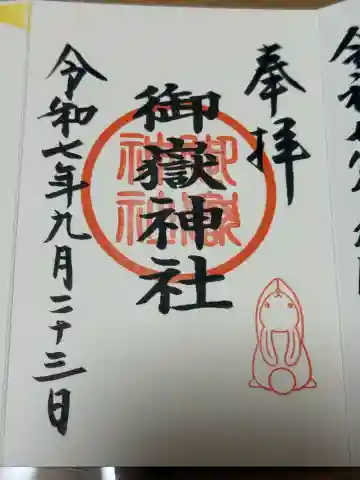 奉拝
御嶽神社
御嶽
神社
令和七年九月二十三日